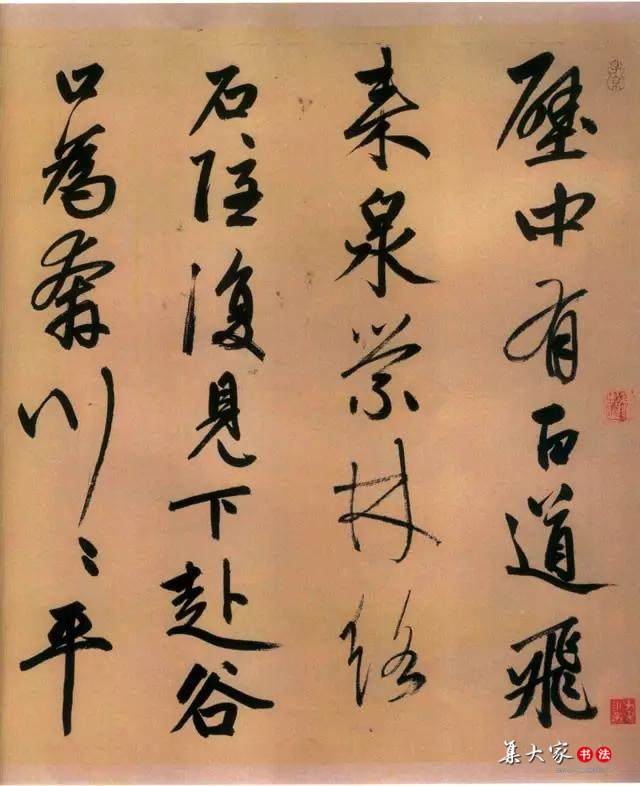 壁中有百道飛
來泉縈林絡
石隱復見下赴谷
口為奔川〻平
集大家书法